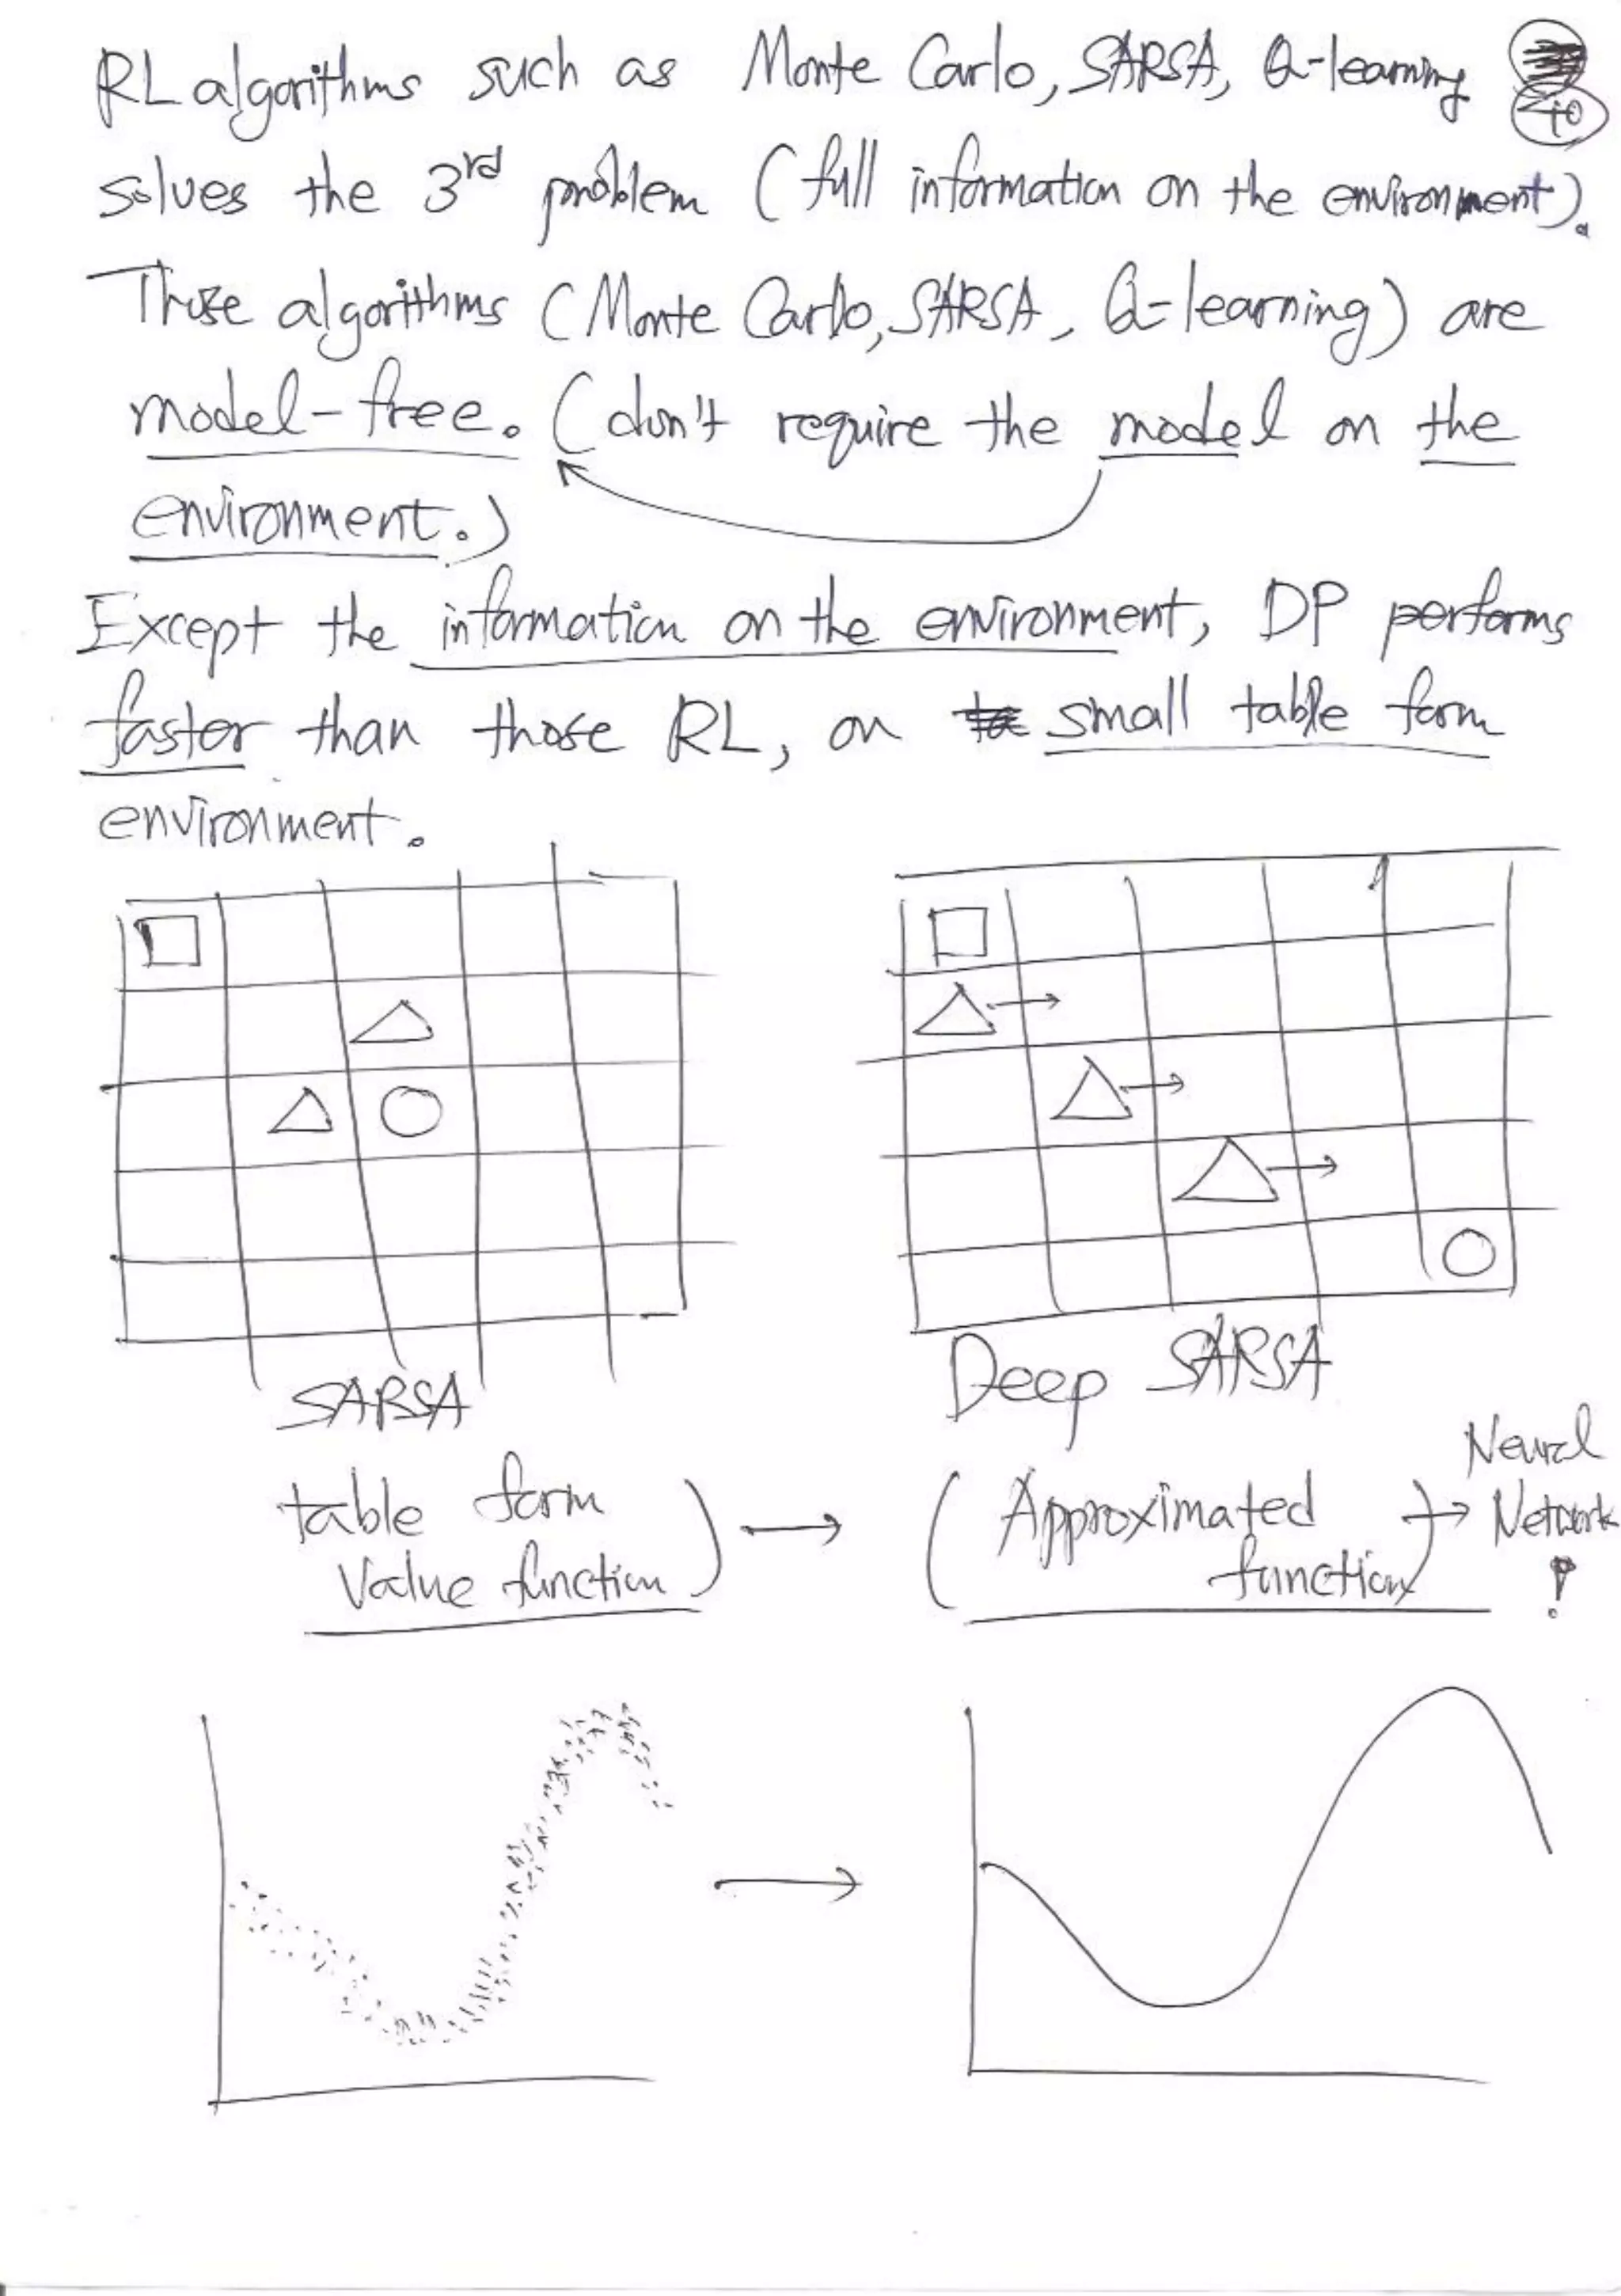 RL algorithms such as Monte Carlo, SARSA, Q-learning
40
solves the 3rd problem (full information on the environment).
Those algorithms (Monte Carlo, SARSA, Q-learning) are
model-free. (don't require the model on the
environment.)
Except the information on the environment, DP performs
faster than those RL, on small table form
environment.
SARSA
Deep SARSA
table form
value function)
→
(Approximated
function)
→ Neural
Network
!